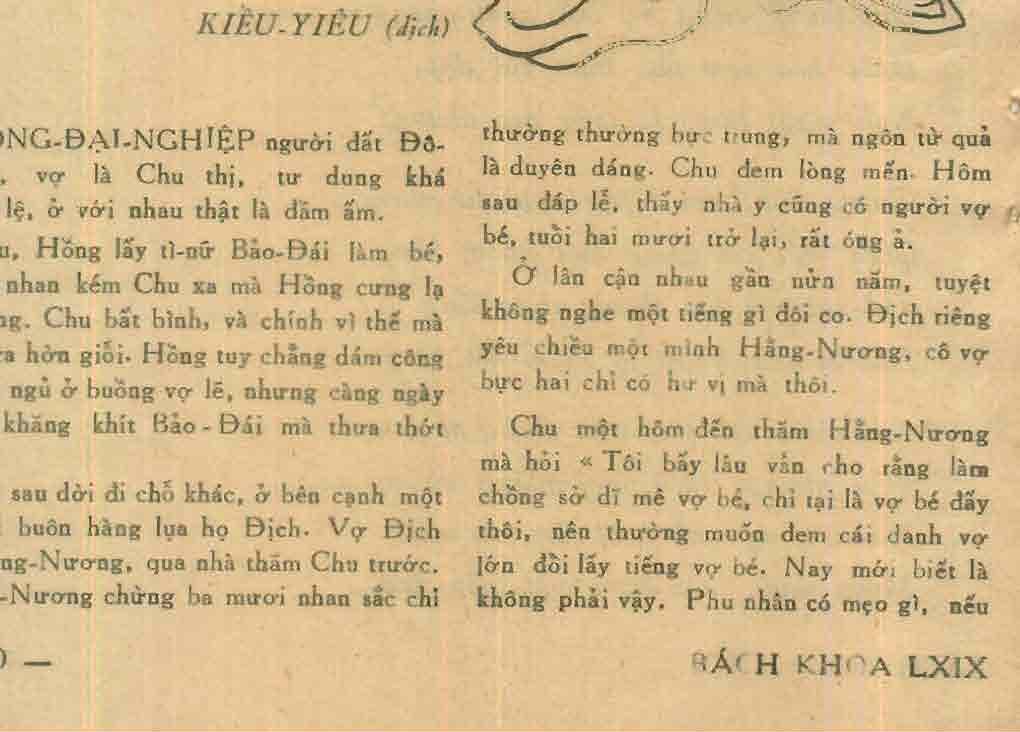 KIỀU-YIÊU (dịch)
ỒNG-ĐẠI-NGHIỆP người đất Đô-
, vợ là Chu thị, tư dung khá
lệ, ở với nhau thật là đầm ấm.
u, Hồng lấy tì-nữ Bảo-Đái làm bé,
nhan kém Chu xa mà Hồng cưng lạ
ng. Chu bất bình, và chính vì thế mà
ra hờn giỗi. Hồng tuy chẳng dám công
ngủ ở buồng vợ lẽ, nhưng càng ngày
khăng khít Bảo-Đái mà thưa thớt
sau dời đi chỗ khác, ở bên cạnh một
buôn hàng lụa họ Địch. Vợ Địch
ng-Nương, qua nhà thăm Chu trước.
-Nương chừng ba mươi nhan sắc chỉ
thường thường bực trung, mà ngôn từ quả
là duyên dáng. Chu đem lòng mến. Hôm
sau đáp lễ, thấy nhà y cũng có người vợ
bé, tuổi hai mươi trở lại, rất óng ả.
Ở lân cận nhau gần nửn năm, tuyệt
không nghe một tiếng gì đôi co. Địch riêng
yêu chiều một mình Hằng-Nương, cô vợ
bực hai chỉ có hư vị mà thôi.
Chu một hôm đến thăm Hằng-Nương
mà hỏi « Tôi bấy lâu vẫn cho rằng làm
chồng sở dĩ mê vợ bé, chỉ tại là vợ bé đấy
thôi, nên thường muốn đem cái danh vợ
lớn đổi lấy tiếng vợ bé. Nay mới biết là
không phải vậy. Phu nhân có mẹo gì, nếu
—
BÁCH KHOA LXIX